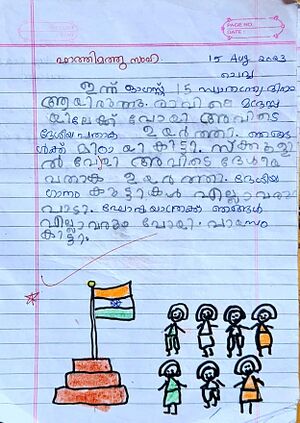 PAGE NO.
DATE:
ഫാത്തിമത്തു സഹ. 15 Aug 2023
ചൊവ്വ
ഇന്ന് ഓഗസ്റ്റ് 15 സ്വാതന്ത്ര്യ ദിനം
ആയിരുന്നു. രാവിലെ മദ്രസ
യിലേക്ക് പോയി അവിടെ
ദേശീയ പതാക ഉയർത്തി. ഞങ്ങ
ൾക്ക് മിഠായി കിട്ടി. സ്ക്കൂളി
ൽ പോയി അവിടെ ദേശീയ
പതാക ഉയർത്തി. ദേശീയ
ഗാനം കുട്ടികൾ എല്ലാവരും
പാടി. ഘോഷയാത്രക്ക് ഞങ്ങൾ
എല്ലാവരും പോയി. പായസം
കിട്ടി.